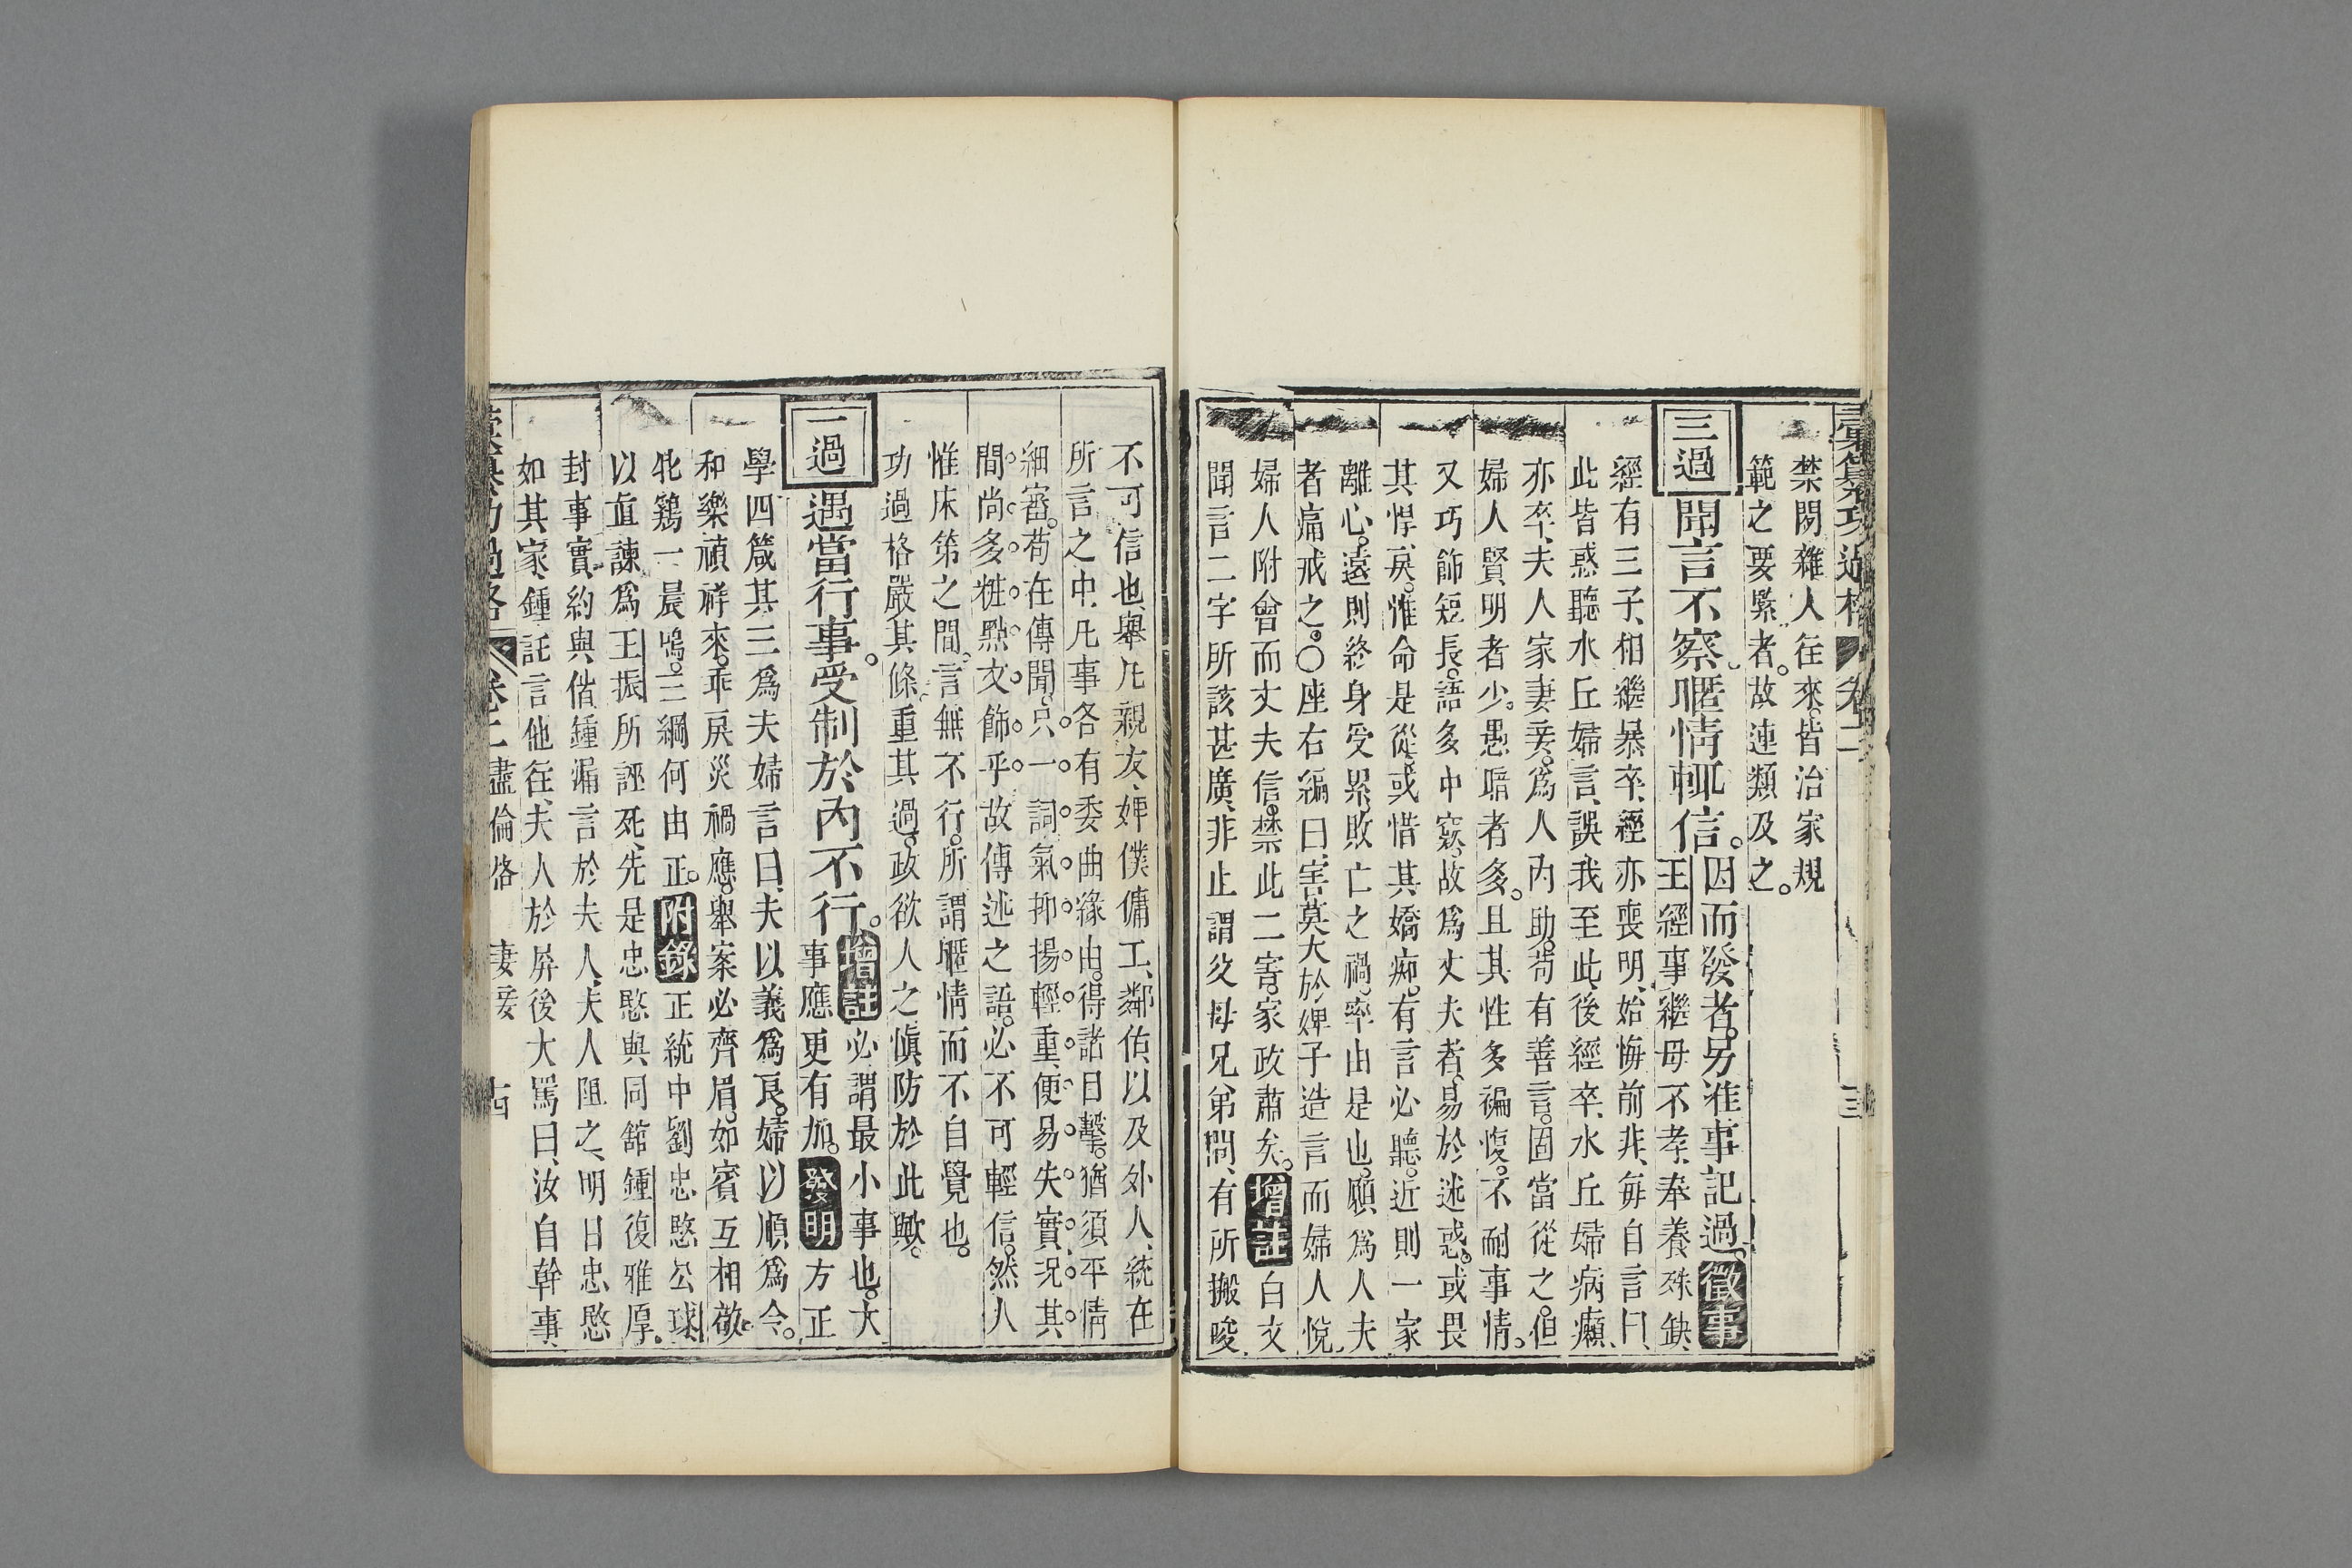 彙纂功過格 卷二
禁閑雜人徃來。皆治家規
範之要緊者。故連類及之。
三過 聞言不察。暱情輒信。因而發者。另准事記過。徵事
王經事繼母不孝、奉養殊缺、
經有三子、相繼暴卒、經亦喪明、始悔前非、每自言曰、
此皆惑聽水丘婦言、誤我至此、後經卒、水丘婦病癩、
亦卒、夫人家妻妾。爲人內助。苟有善言。固當從之。但
婦人賢明者少。愚暗者多。且其性多褊愎。不耐事情。
又巧飾短長。語多中窾。故爲丈夫者、易於迷惑。或畏
其悍戾。惟命是從。或惜其嬌痴。有言必聽。近則一家
離心。遠則終身受累、敗亡之禍。率由是也。願爲人夫
者痛戒之。○座右編曰、害莫大於婢子造言而婦人悅、
婦人附會而丈夫信。禁此二害。家政肅矣。增註 白文
聞言二字所該甚廣、非止謂父母兄弟間、有所搬唆
不可信也、舉凡親友、婢僕傭工、鄰佑、以及外人、統在
所言之中、凡事各有委曲緣由。得諸目擊。猶須平情
細審。苟在傳聞。只一詞氣抑揚輕重、便易失實、况其
間尚多粧點文飾乎。故傳述之語。必不可輕信。然人
惟床笫之間。言無不行。所謂暱情而不自覺也。
功過格嚴其條。重其過。政欲人之愼防於此歟。
一過 遇當行事。受制於內不行。增註 必謂最小事也。大
事應更有加。發明 方正
學四箴其三爲夫婦言曰、夫以義爲良。婦以順爲令。
和樂禎祥來。乖戾災禍應。舉案必齊眉。如賓互相敬。
牝鷄一晨鳴。三綱何由正。附錄 正統中劉忠愍公球
以直諫爲王振所誣死、先是忠愍與同舘鍾復雅厚。
封事實約與偕鍾漏言於夫人、夫人阻之、明日忠愍
如其家、鍾託言他徃、夫人於屏後大罵曰、汝自幹事
彙纂功過格 卷二 盡倫格 妻妾 十四